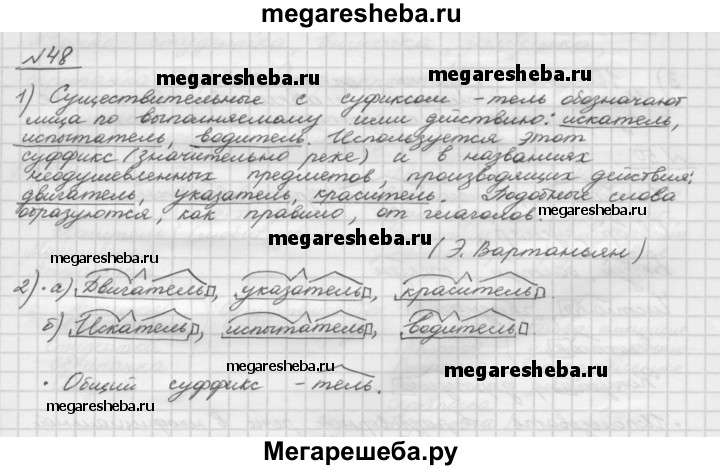 megaresheba.ru
№48
megaresheba.ru megaresheba.ru
1) Существительные с суфиксом -тель обозначают
лица по выполняемому ими действию: искатель,
испытатель, водитель. Используется этот
суффикс (значительно реже) и в названиях
неодушевленных предметов, производящих действия:
двигатель, указатель, краситель. Подобные слова
образуются, как правило, от глаголов.
megaresheba.ru
megaresheba.ru megaresheba.ru
(Э. Вартаньян)
2) · а) Двигатель, указатель, краситель.
б) Искатель, испытатель, водитель.
megaresheba.ru megaresheba.ru
· Общий суффикс -тель.
megaresheba.ru megaresheba.ru
Мегарешеба.ру